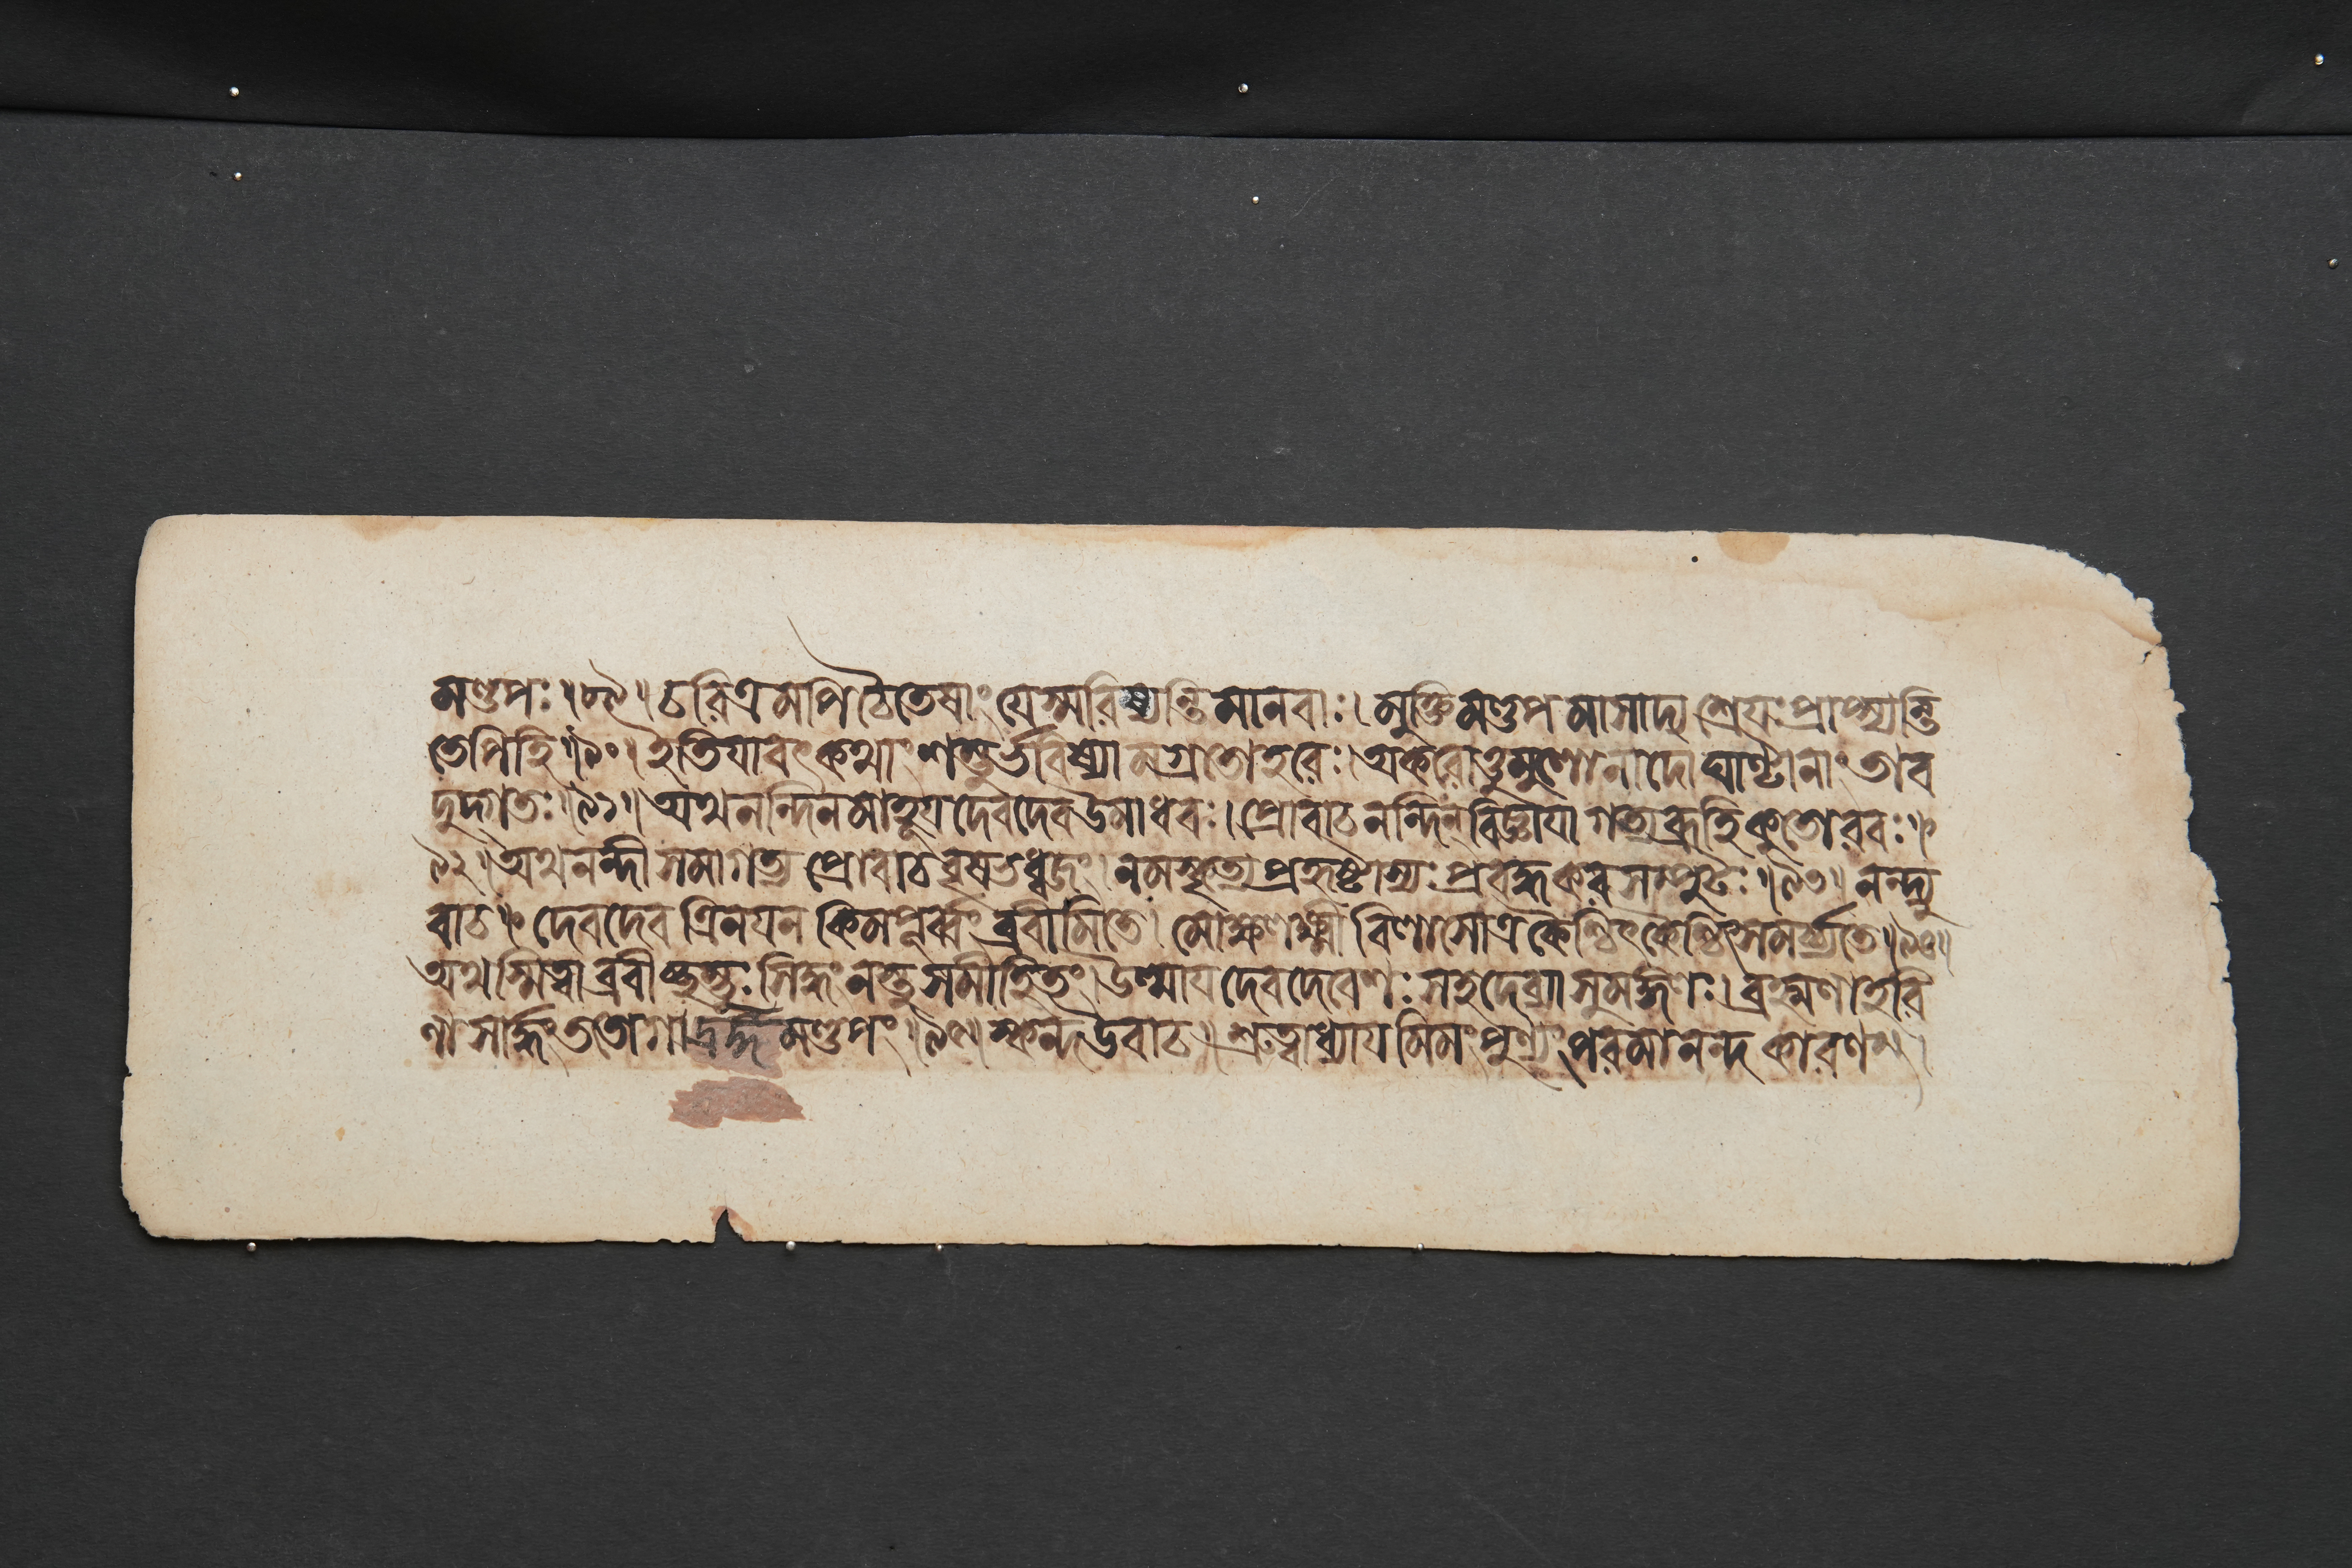 মণ্ডপঃ।৮৯। চরিত্রমপিচৈতেষাং যেস্মরিষ্যন্তি মানবাঃ। মুক্তিমণ্ডপমাসাদ্য শ্রেয়ঃ প্রাপ্স্যন্তি
তেপিহি।৯০। ইতিযাবৎকথাং শম্ভুর্ভবিষ্যামগ্রতোহরেঃ। অকরোত্তুমুলোনাদো ঘণ্টানাং তাব
দুদ্গতঃ।৯১। অথনন্দিনমাহূয় দেবদেবউমাধবঃ। প্রোবাচনন্দিনবিজ্ঞায়া গত্যব্রূহিকুতোরবঃ॥
৯২। অথনন্দী সমাগত্য প্রোবাচবৃষভধ্বজং। নমস্কৃত্য প্রহৃষ্টাস্যঃ প্রবদ্ধকরসম্পুটঃ।৯৩। নন্দ্যু
বাচ॥ দেবদেব ত্রিনয়ন কিমপূর্ব্বং ব্রবীমিতে। মোক্ষলক্ষ্মী বিলাসোত্র কৈশ্চিৎকৈশ্চিৎসমর্চ্চ্যতে।৯৪।
অথস্মিত্বাব্রবীচ্ছম্ভুঃ সিদ্ধংনস্তু সমীহিতং। উত্থায় দেবদেবেশঃ সহদেব্যা সুমঙ্গলঃ। ব্রহ্মণাহরি
ণাসার্দ্ধং ততোগাদ্রঙ্গমণ্ডপং।৯৫। স্কন্দউবাচ॥ শ্রুত্বাধ্যায়মিমং পুণ্যং পরমানন্দ কারণম্।